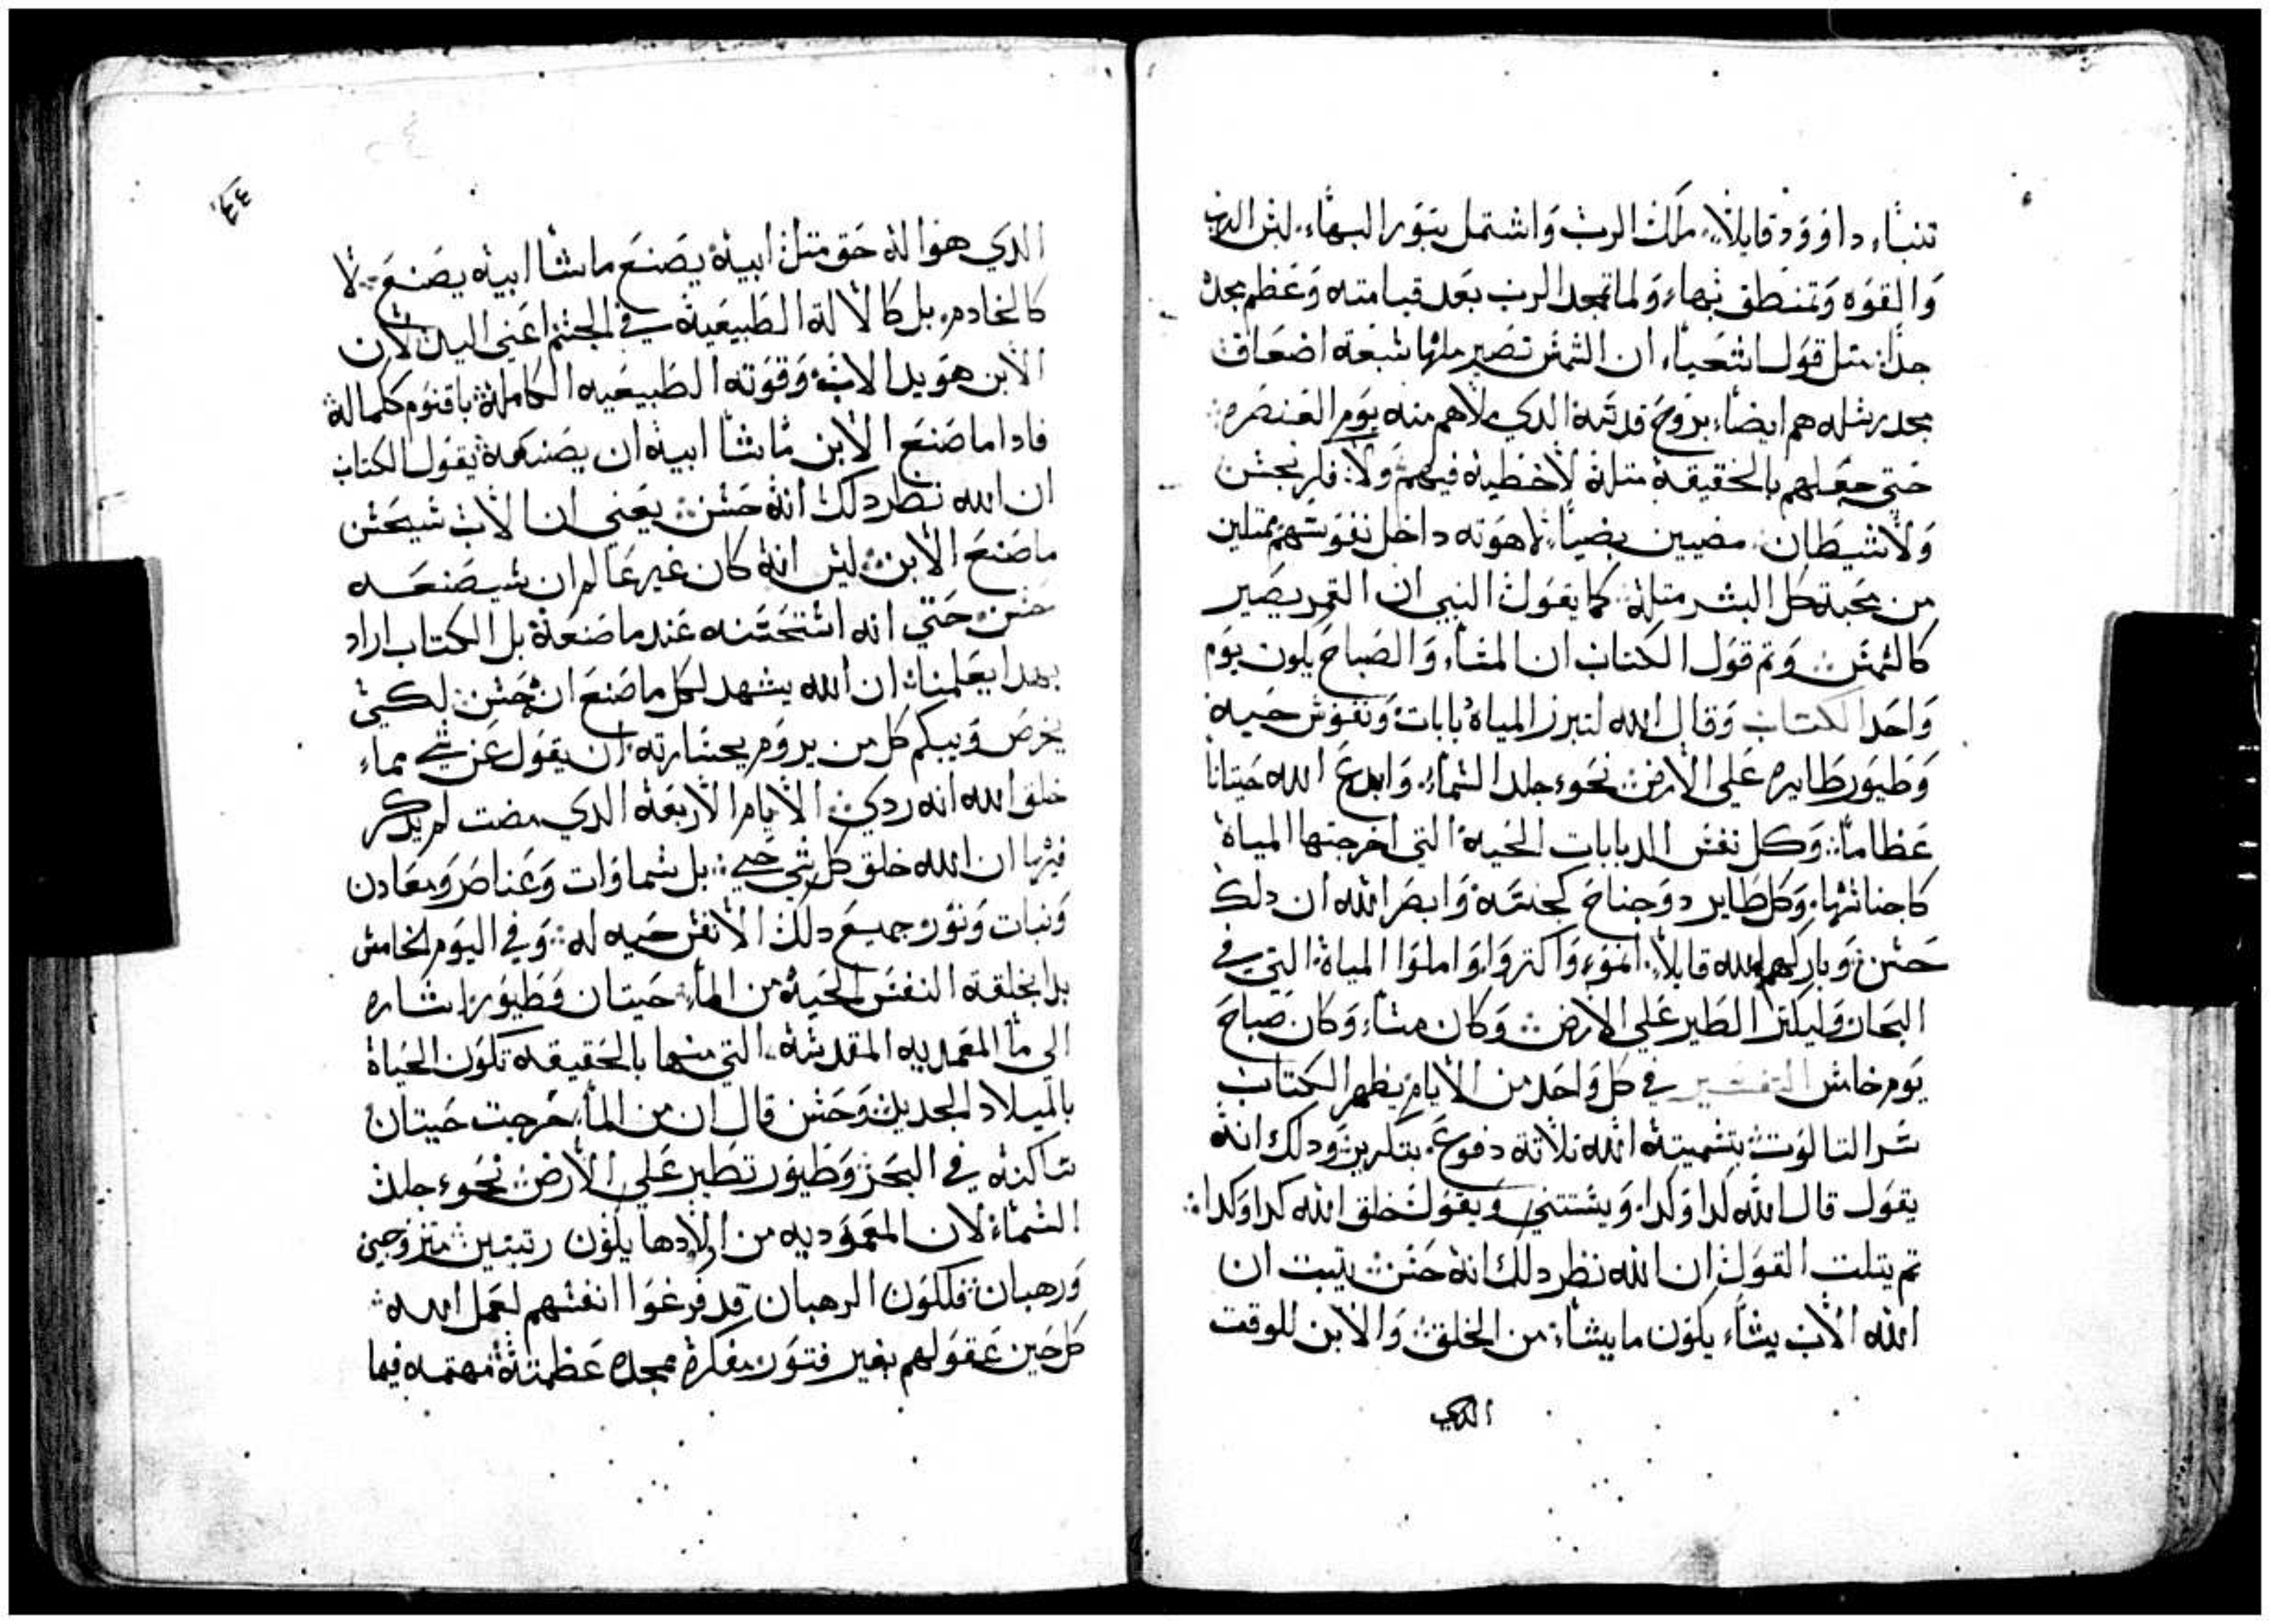 تنباء داوود قايلاً ملك الرب واشتمل بنور البهاء لبس الرب
والقوه وتمنطق بهاء ولما تمجد الرب بعد قيامته وعظم مجده
جداً متل قول اشعياء ان الشمس تصير متلها سبعة اضعاف
مجد رسله هم ايضاً بروح قدسة الدي ملاهم منه يوم العنصره
حتي جعلهم بالحقيقة متلة لاخطية فيهم ولا فكر نجس
ولا شيطان مضيين بضياء لاهوته داخل نفوسهم ممتلين
من محبة كل البشر متلة كما يقول النبي ان القمر يصير
كالشمس وتم قول الكتاب ان المساء والصباح يكون يوم
واحد الكتاب وقال الله لتبرز المياة دبابات ونفوس حيه
وطيور طايره علي الارض نحو جلد السماء وابدع الله حيتاناً
عظاماً وكل نفس الدبابات الحية التي اخرجتها المياة
كاجناسها وكل طاير دو جناح كجنسة وابصر الله ان دلك
حسن وباركهم الله قايلاً انمو واكتروا واملوا المياة التي في
البحار وليكتر الطير علي الارض وكان مساء وكان صباح
يوم خامس التفسير في كل واحد من الايام يظهر الكتاب
سر التالوت بتسمية الله تلاتة دفوع بتكرير ودلك انة
يقول قال الله كدا وكدا ويستتني ويقول خلق الله كدا وكدا
تم يتلت القول ان الله نظر دلك انة حسن يتبت ان
الله الاب يشاء يكون ما يشاء من الخلق والابن للوقت
الدي
٤٣
الدي هو الة حق متل ابية يصنع ما يشا ابية يصنع لا
كالخادم بل كالالة الطبيعية في الجسم اعني اليد لان
الابن هو يد الاب وقوته الطبيعيه الكاملة باقنوم كلمالة
فادا ما صنع الابن ما يشا ابية ان يصنعة يقول الكتاب
ان الله نظر دلك انة حسن يعني ان الاب شيحسن
ما صنع الابن ليس انة كان غير عالم ان شيصنعه
حسن حتي انه استحسنه عند ما صنعة بل الكتاب اراد
بهدا يعلمنا ان الله يشهد لكل ما صنع انه حسن لكي
يخرص ويبكم كل من يروم بجسارته ان يقول عن شي مماء
خلق الله انه ردي الايام الاربعة الدي مضت لم يدكر
فيها ان الله خلق كل شي حي بل سماوات وعناصر ومعادن
ونبات ونور وجميع دلك لا نفس حيه له وفي اليوم الخامس
بدا بخلقة النفس الحية من الماء حيتان وطيور اشاره
الي ما المعمديه المقدسة التي منها بالحقيقة تكون الحياة
بالميلاد الجديد وحسن قال ان من الماء خرجت حيتان
ساكنة في البحر وطيور تطير علي الارض نحو جلد
السماء لان المعموديه من اولادها يكون رتبتين متزوجين
ورهبان فلكون الرهبان قد فرغوا انفسهم لعمل الله
كل حين عقولهم بغير فتور مفكرة بمجده عظمتة مهتمه فيما